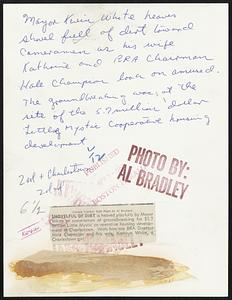 Mayor Kevin White heaves
shovel full of dirt toward
cameramen as his wife
Kathrine and BRA Chairman
Hale Champion look on amused.
The groundbreaking was, at the
site of the 5.7 million dollar
Little Mystic Cooperative housing
development
PHOTO BY:
AL BRADLEY
6 1/2
SHOVELFUL OF DIRT is heaved playfully by Mayor
White at cameramen at groundbreaking for $5.7
million Little Mystic co-operative housing develop-
ment in Charlestown. With him are BRA Director
Hale Champion and his wife, Kathryn White, a
Charlestown girl.